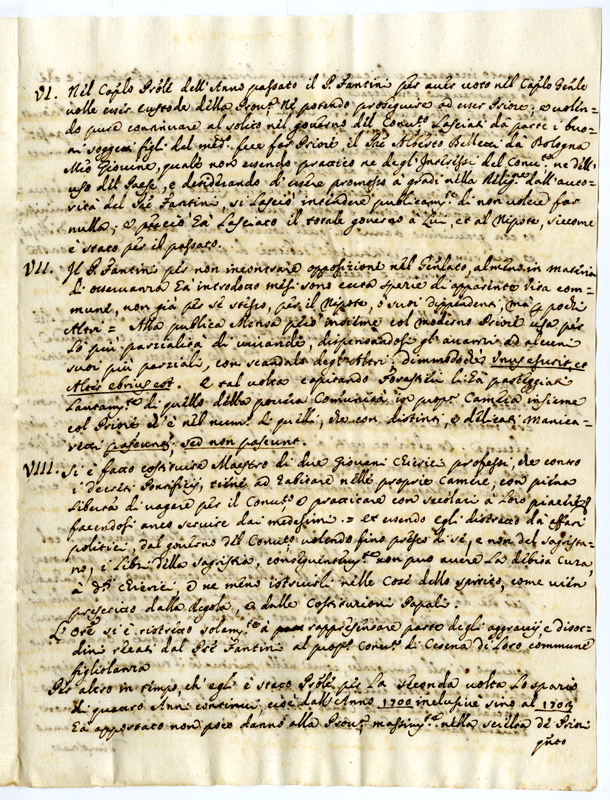 VI. Nel Cap̃lo Prõle dell'Anno passato il P. Fantini per aver voto nel Cap̃lo Gẽnle
volle esser Custode della Prov.ª Nè potendo proseguire ad esser Priore, e volen-
do pure continuare al solito nel governo del Conv.to Lasciati da parte i buo-
ni soggetti figli del med.º fece far Priore il P̃re Alberto Bellucci da Bologna
Mio Giovine, quale non essendo practico ne degl'Interessi del Conv.to ne dell'
uso del Paese, e desiderando di essere promosso à gradi nella Relig.ne dall'auto-
rità del P̃re Fantini, si lasciò intendere publicam.te di non volere far
nulla; e perciò hà Lasciato il totale governo à Lui, et al Nipote, siccome
è stato per il passato.
VII. Il P. Fantini per non incontrare opposizione nel Gẽnlato, almeno in materia
di osservanza hà introdotto mesi sono certa specie di apparente vita com-
mune, non già per sè stesso, per il Nipote, ò suoi dippendenti, mà p pochi
Altri = Alla publica Mensa però insieme col moderno Priore usa per
Lo più parzialità di vivande, dispensandosi gl'avanzi ad alcuni
suoi più parziali, con scandalo degl'Altri dimmodoche Unus esurit, et
Alter ebrius est. e tal volta capitando Forastieri li hà partegiati
Lautam.te di quello della povera Communità in propr.ª Camera insieme
col Priore ch'è nel num.º di quelli, che con distinti, e delicati manica-
retti pascuntur, sed non pascunt.
VIII. Si è fatto costituire Maestro di due Giovani Chierici professi, che contro
i decreti Pontificij, tiene ad habitare nelle proprie Camere, con piena
Libertà di vagare per il Conv.to e pratticare con secolari à Loro piacere
facendosi anco servire dai medesimi = et essendo egli distratto da affari
politici, dal governo del Conv.to volendo fino presso di sè, e non del Sagrista-
no, i Libri della Sagristia, conseguentem.te non può avere La debita cura,
à d.i Chierici e ne meno istruirli nelle Cose dello spirito, come vien
prescritto dalla Regola, e dalle Costituzioni Papali.
L'Ore si è ristretto solam.te à rappresentare parte degli aggravij, e disor-
dini recati dal P̃re Fantini al propr.º Conv.to di Cesena di Loro commune
figliolanza
Per altro in tempo, ch'egli è stato Prõle per La seconda volta Lo spazio
di quattro Anni continui, cioè dall'Anno 1700 inclusive sino al 1703
hà apportato non poco danno alla Prov.ª, massim.te nella scielta de Priori